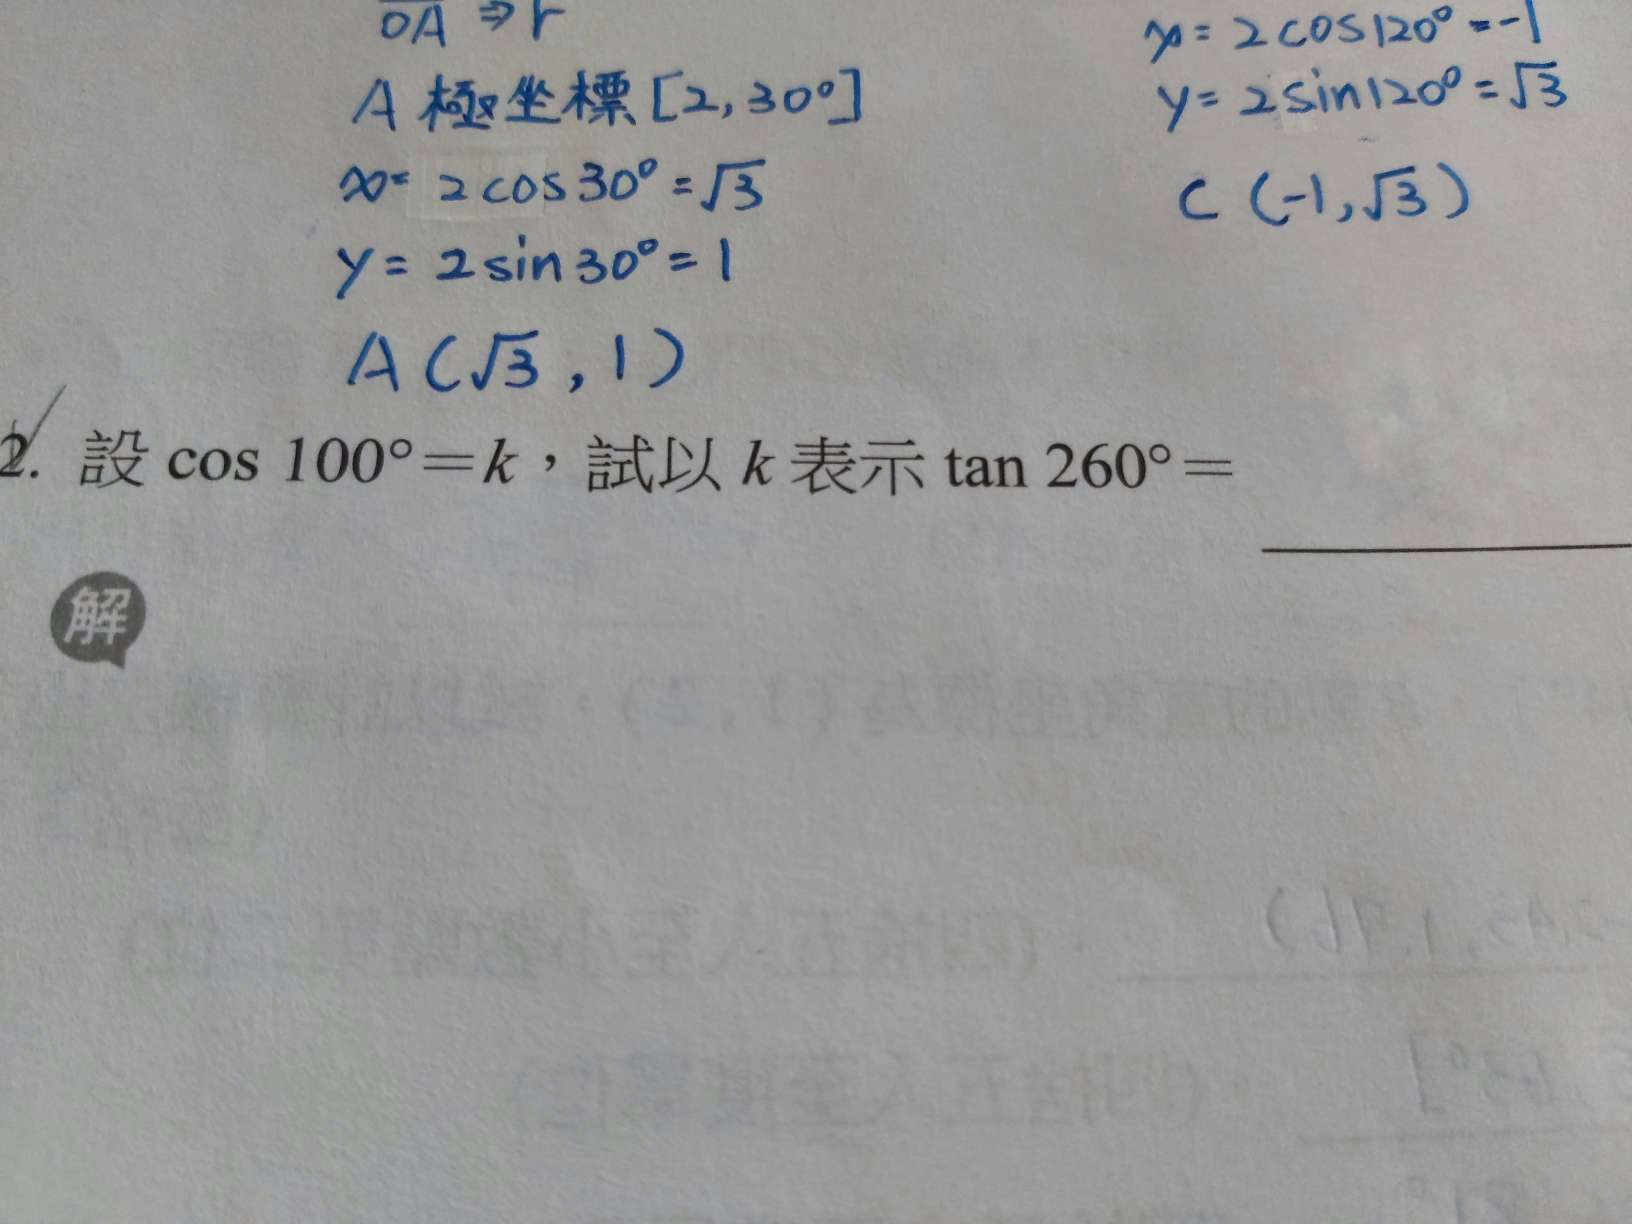 OA ⇒ r
A 極坐標 [2, 30°]
x = 2 cos 30° = √3
y = 2 sin 30° = 1
A (√3, 1)
x = 2 cos 120° = -1
y = 2 sin 120° = √3
C (-1, √3)
2. 設 cos 100°=k，試以 k 表示 tan 260°=
解